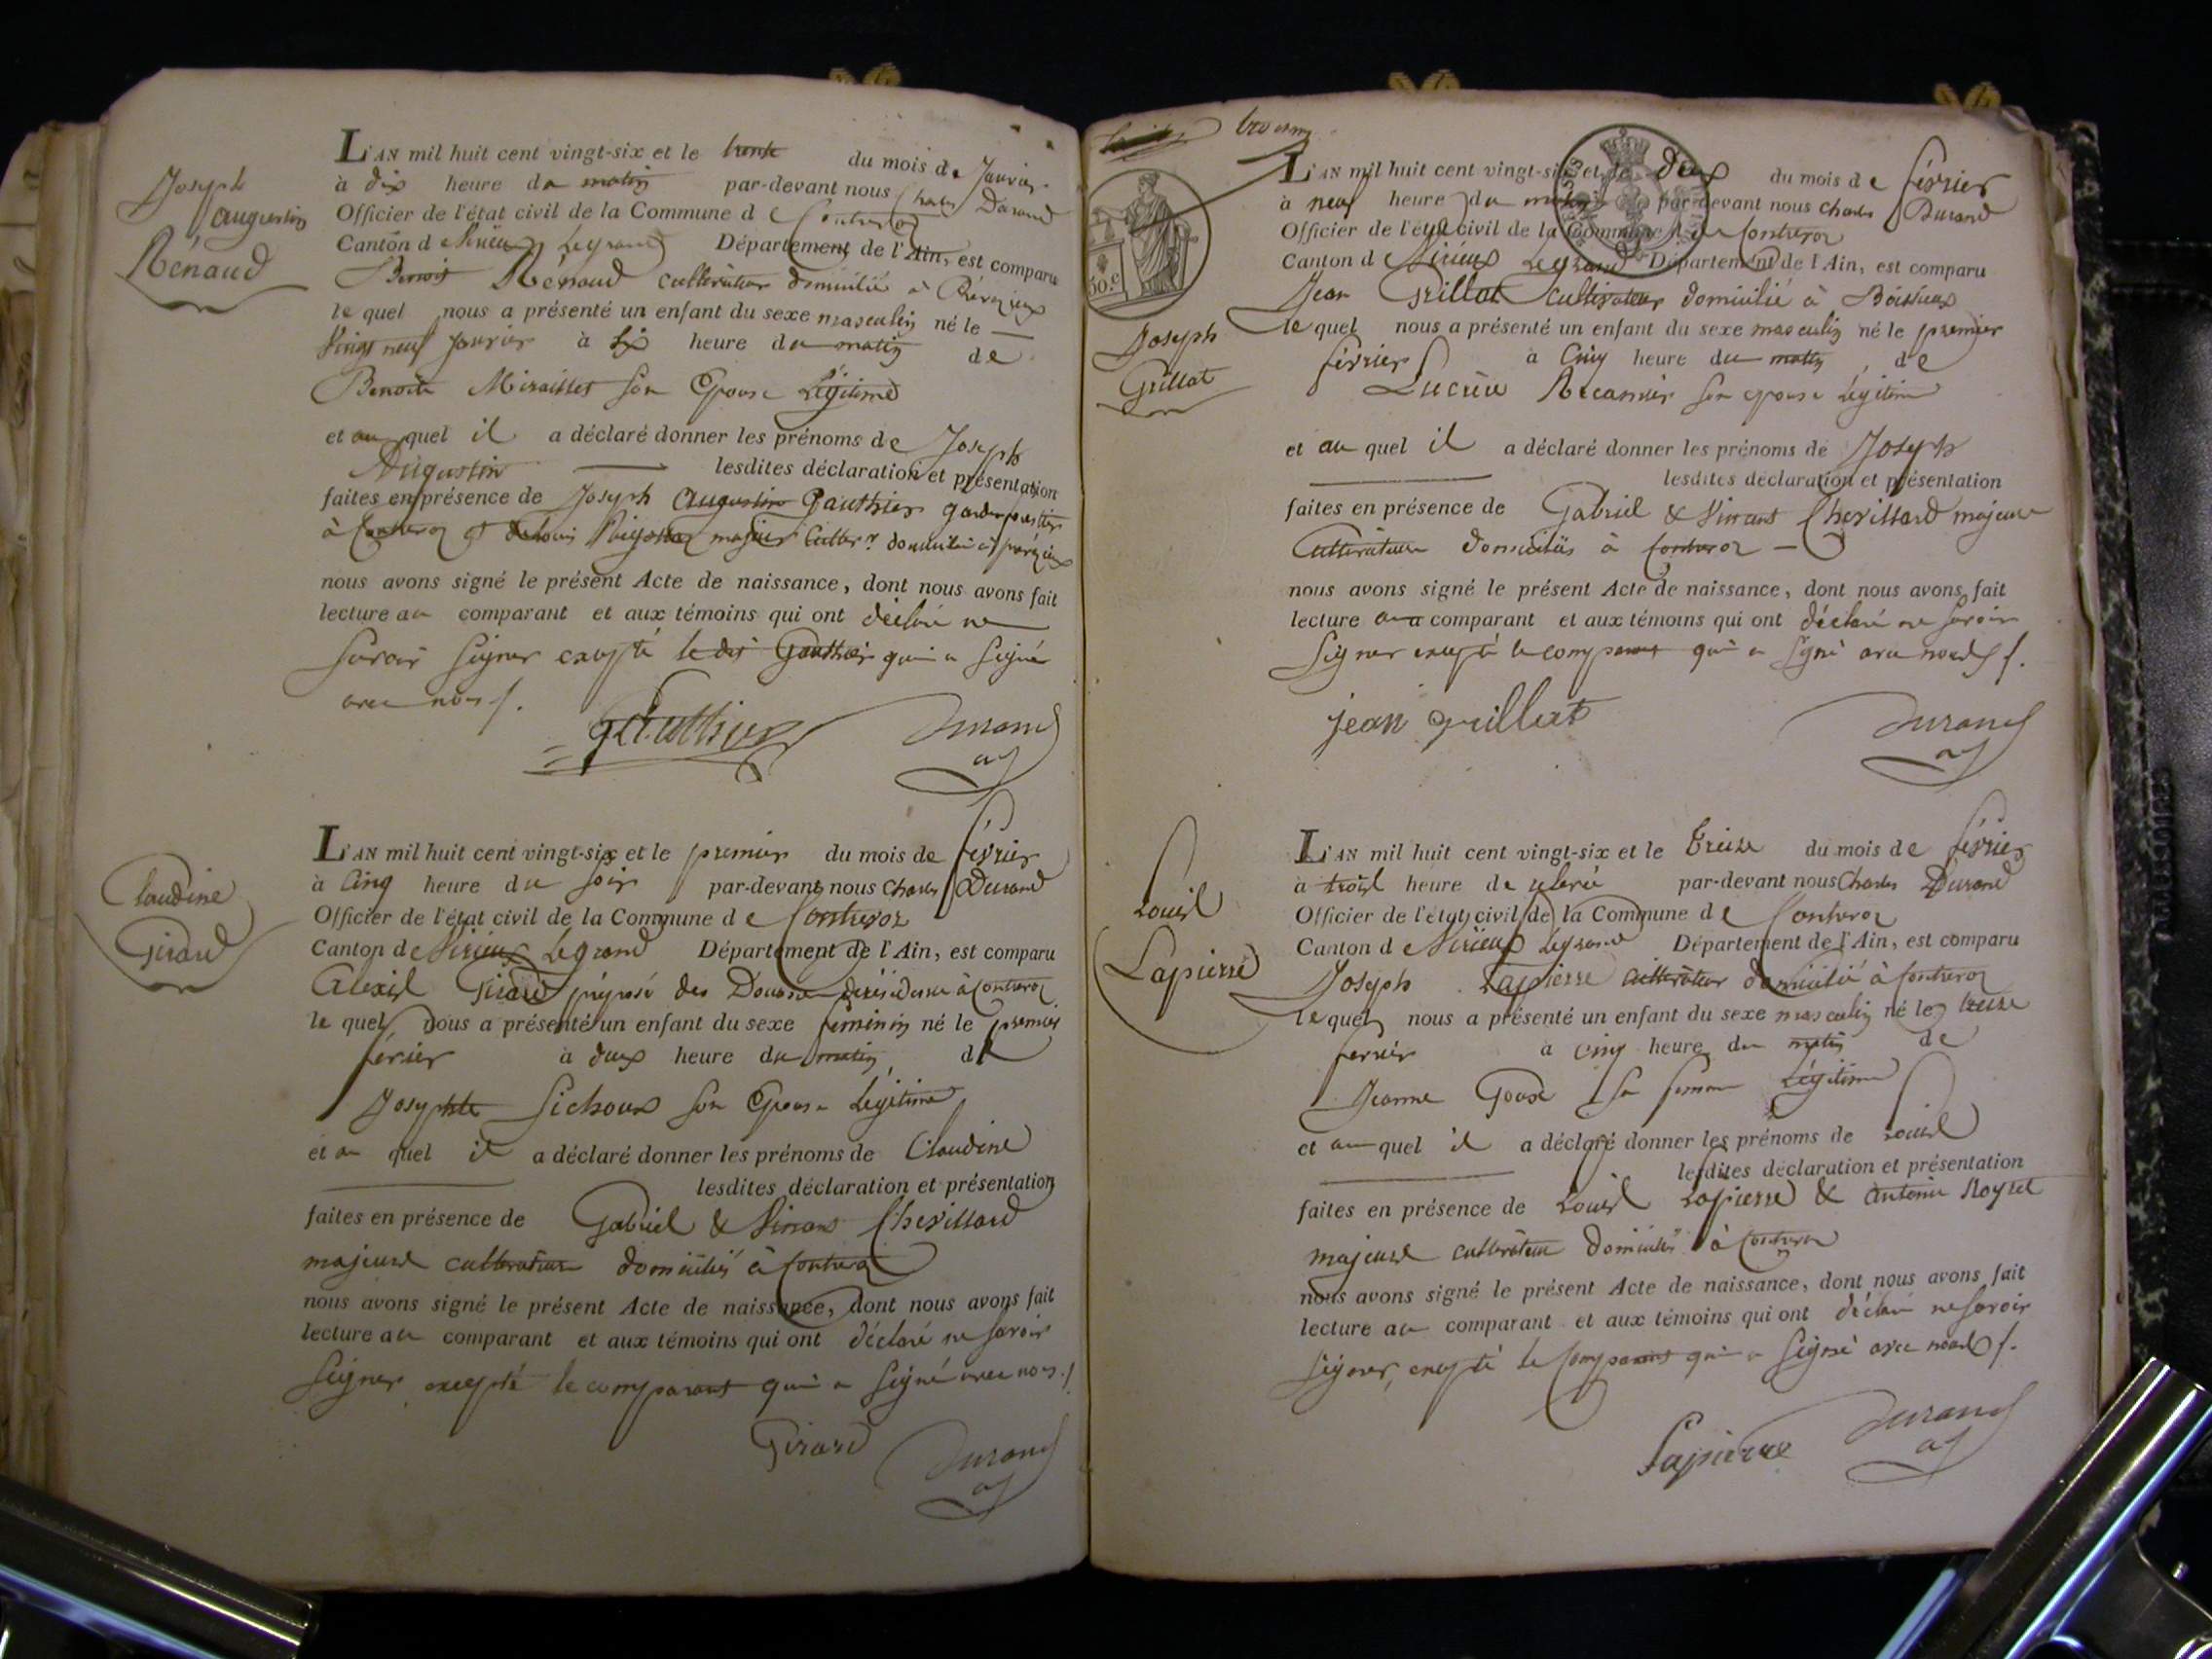 Joseph
augustin
Rénaud
L'AN mil huit cent vingt-six et le trente du mois de Janvier
à dix heure du matin par-devant nous Charles Durand
Officier de l'état civil de la Commune de Contrevoz
Canton de Virieux Legrand Département de l'Ain, est comparu
Benoit Rénaud cultivateur domicilié à
le quel nous a présenté un enfant du sexe masculin né le
Vingt neuf janvier à six heure du matin de
Benoite Miraillet son Epouse Légitime
et au quel il a déclaré donner les prénoms de Joseph
Augustin lesdites déclaration et présentation
faites en présence de Joseph augustin Gauthier garde forestier
à Contrevoz et majeur domicilié à
nous avons signé le présent Acte de naissance, dont nous avons fait
lecture au comparant et aux témoins qui ont déclaré ne
savoir signer excepté le dit Gauthier qui a signé
avec nous /.
Gauthier Durand
Claudine
Girard
L'AN mil huit cent vingt-six et le premier du mois de février
à Cinq heure du soir par-devant nous Charles Durand
Officier de l'état civil de la Commune de Contrevoz
Canton de Virieux Legrand Département de l'Ain, est comparu
Alexis Girard préposé des Douanes à Contrevoz
le quel nous a présenté un enfant du sexe féminin né le premier
février à deux heure du matin de
Josephte Sichoux son Epouse Légitime
et au quel il a déclaré donner les prénoms de Claudine
lesdites déclaration et présentation
faites en présence de Gabriel & Vincent Chevillard
majeurs cultivateurs domiciliés à Contrevoz
nous avons signé le présent Acte de naissance, dont nous avons fait
lecture au comparant et aux témoins qui ont déclaré ne savoir
signer excepté le comparant qui a signé avec nous /.
Girard Durand
30.c
Joseph
Grillat
L'AN mil huit cent vingt-six et le deux du mois de février
à neuf heure du matin par-devant nous Charles Durand
Officier de l'état civil de la Commune de Contrevoz
Canton de Virieux Legrand Département de l'Ain, est comparu
Jean Grillat cultivateur domicilié à Boissieux
le quel nous a présenté un enfant du sexe masculin né le premier
février à Cinq heure du matin de
Lucrèce Récamier son épouse Légitime
et au quel il a déclaré donner les prénoms de Joseph
lesdites déclaration et présentation
faites en présence de Gabriel & Vincent Chevillard majeurs
Cultivateurs domiciliés à Contrevoz
nous avons signé le présent Acte de naissance, dont nous avons fait
lecture au comparant et aux témoins qui ont déclaré ne savoir
signer excepté le comparant qui a signé avec nous /.
jean grillat Durand
Louis
Lapierre
L'AN mil huit cent vingt-six et le treize du mois de février
à trois heure de relevé par-devant nous Charles Durand
Officier de l'état civil de la Commune de Contrevoz
Canton de Virieux Legrand Département de l'Ain, est comparu
Joseph Lapierre cultivateur domicilié à Contrevoz
le quel nous a présenté un enfant du sexe masculin né le treize
février à cinq heure du matin de
Jeanne Goux sa femme Légitime
et au quel il a déclaré donner les prénoms de Louis
lesdites déclaration et présentation
faites en présence de Louis Lapierre & antoine Roysset
majeurs cultivateurs domiciliés à Contrevoz
nous avons signé le présent Acte de naissance, dont nous avons fait
lecture au comparant et aux témoins qui ont déclaré ne savoir
signer, excepté le comparant qui a signé avec nous /.
Lapierre Durand